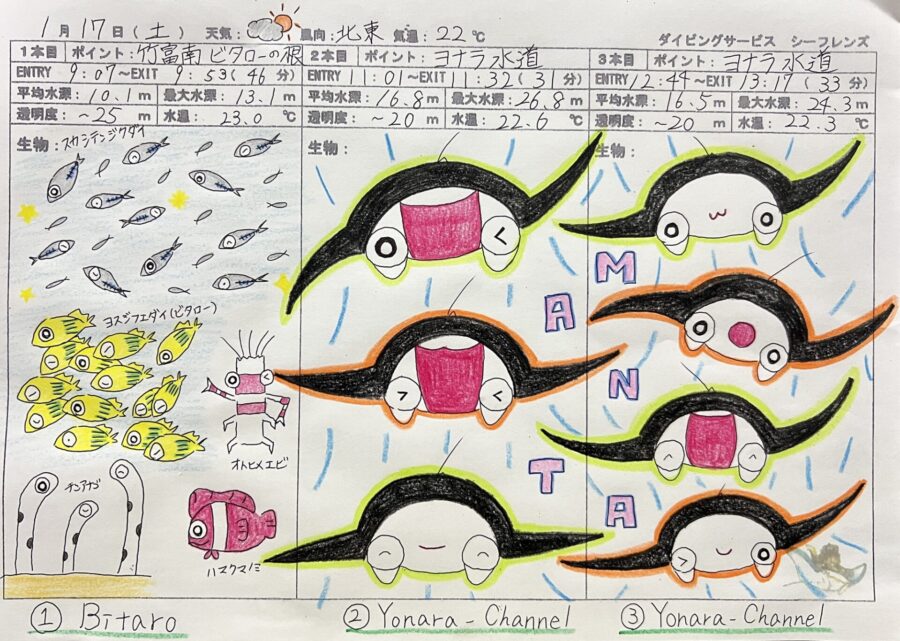 1月17日(土) 天気: 風向:北東 気温:22℃
ダイビングサービス シーフレンズ
1本目 ポイント:竹富南ビタローの根
ENTRY 9:07~EXIT 9:53(46分)
平均水深:10.1m 最大水深:13.1m
透明度:~25m 水温:23.0℃
生物:スカシテンジクダイ
ヨスジフエダイ(ビタロー)
オトヒメエビ
チンアナゴ
ハマクマノミ
① Bitaro
2本目 ポイント:ヨナラ水道
ENTRY 11:01~EXIT 11:32(31分)
平均水深:16.8m 最大水深:26.8m
透明度:~20m 水温:22.6℃
生物:
② Yonara-Channel
3本目 ポイント:ヨナラ水道
ENTRY 12:44~EXIT 13:17(33分)
平均水深:16.5m 最大水深:24.3m
透明度:~20m 水温:22.3℃
生物:
M
A
N
T
A
③ Yonara-Channel